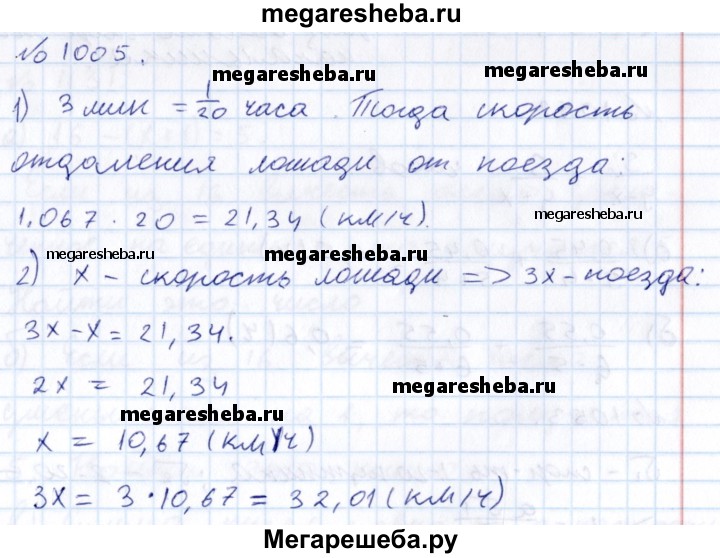 megaresheba.ru
№ 1005.
megaresheba.ru
1) 3 мин = 1/20 часа. Тогда скорость
отдаления лошади от поезда:
1,067 · 20 = 21,34 (км/ч).
megaresheba.ru
megaresheba.ru
2) x – скорость лошади => 3x – поезда:
3x – x = 21,34.
2x = 21,34
megaresheba.ru
megaresheba.ru
x = 10,67 (км/ч)
3x = 3 · 10,67 = 32,01 (км/ч)
Мегарешеба.ру